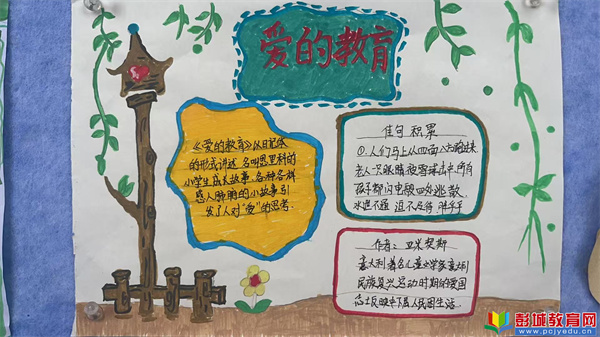 爱的教育
《爱的教育》以日记体
的形式讲述一名叫恩里科的
小学生成长故事，各种各样
感人肺腑的小故事，引
发了人对“爱”的思考.
佳句积累
①.人们马上从四面八方跑过来
老人一只眼睛被雪球击中，所有
孩子都闪电般四处逃散
作者：亚米契斯
意大利著名儿童文学家，意大利
民族复兴运动时期的爱国
志士反映中下层人民困苦生活
彭城教育网
www.pcjyedu.cn